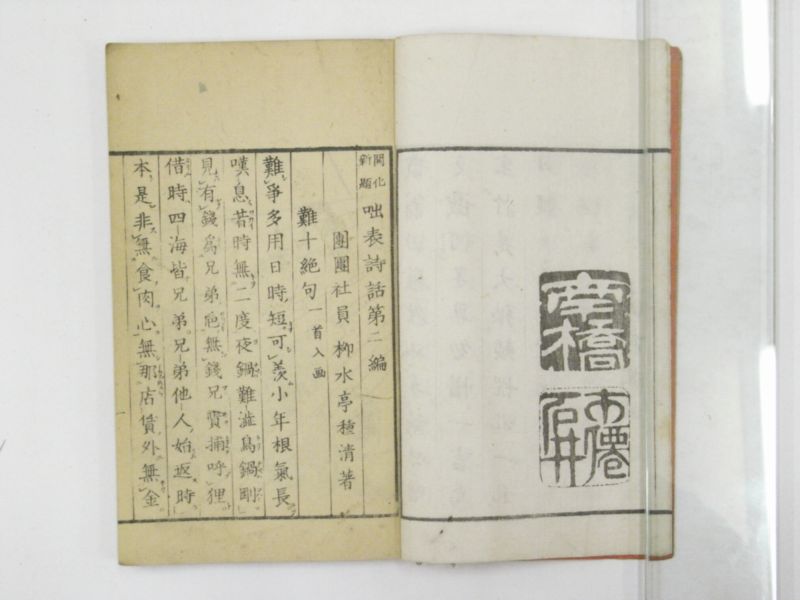 南橋
開化新題 咄表詩話第二編
團團社員 柳水亭種清著
難十絶句 一首入画
難爭多用日時短可羨小年根氣長
嘆息昔時無二度夜鍋難澁鳥鍋剛
見有錢爲兄弟無錢兄賣捕呼狸
借時四海皆兄弟兄弟他人始返時
本是非無食肉心無那店賃外無金